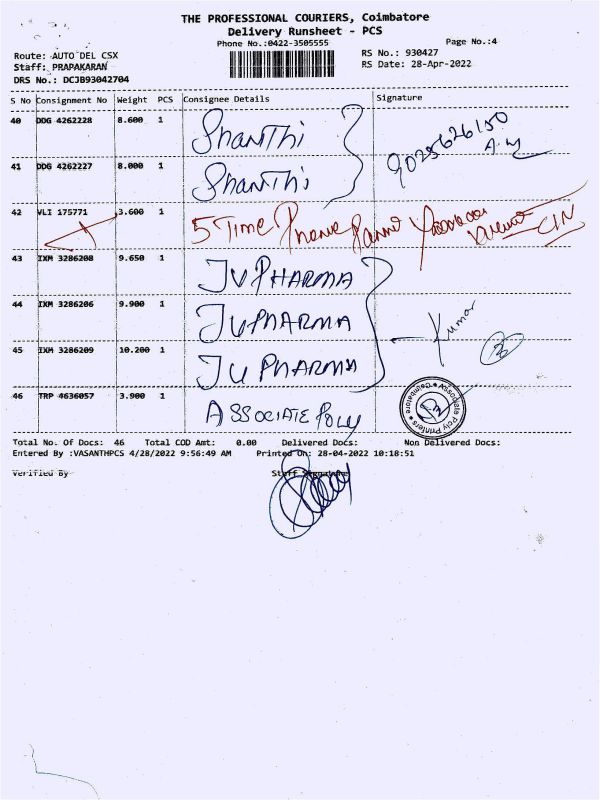 THE PROFESSIONAL COURIERS, Coimbatore
Delivery Runsheet - PCS
Phone No.:0422-3505555
Page No.:4
Route: AUTO DEL CSX
RS No.: 930427
Staff: PRAPAKARAN
RS Date: 28-Apr-2022
DRS No.: DCJB93042704
S No Consignment No Weight PCS Consignee Details Signature
40 DDG 4262228 8.600 1 Shanthi
9025626150
41 DDG 4262227 8.000 1 Shanthi
42 VLI 175771 3.600 1 5 Time Phone
43 IXM 3286208 9.650 1 JV PHARMA
44 IXM 3286206 9.900 1 JU PHARMA Kumar
45 IXM 3286209 10.200 1 JU PHARMA
46 TRP 4636057 3.900 1 ASSOCIATE POLY
Associate Poly Printers Coimbatore
Total No. Of Docs: 46 Total COD Amt: 0.00 Delivered Docs: Non Delivered Docs:
Entered By :VASANTHPCS 4/28/2022 9:56:49 AM Printed On: 28-04-2022 10:18:51
Verified By Staff Signature